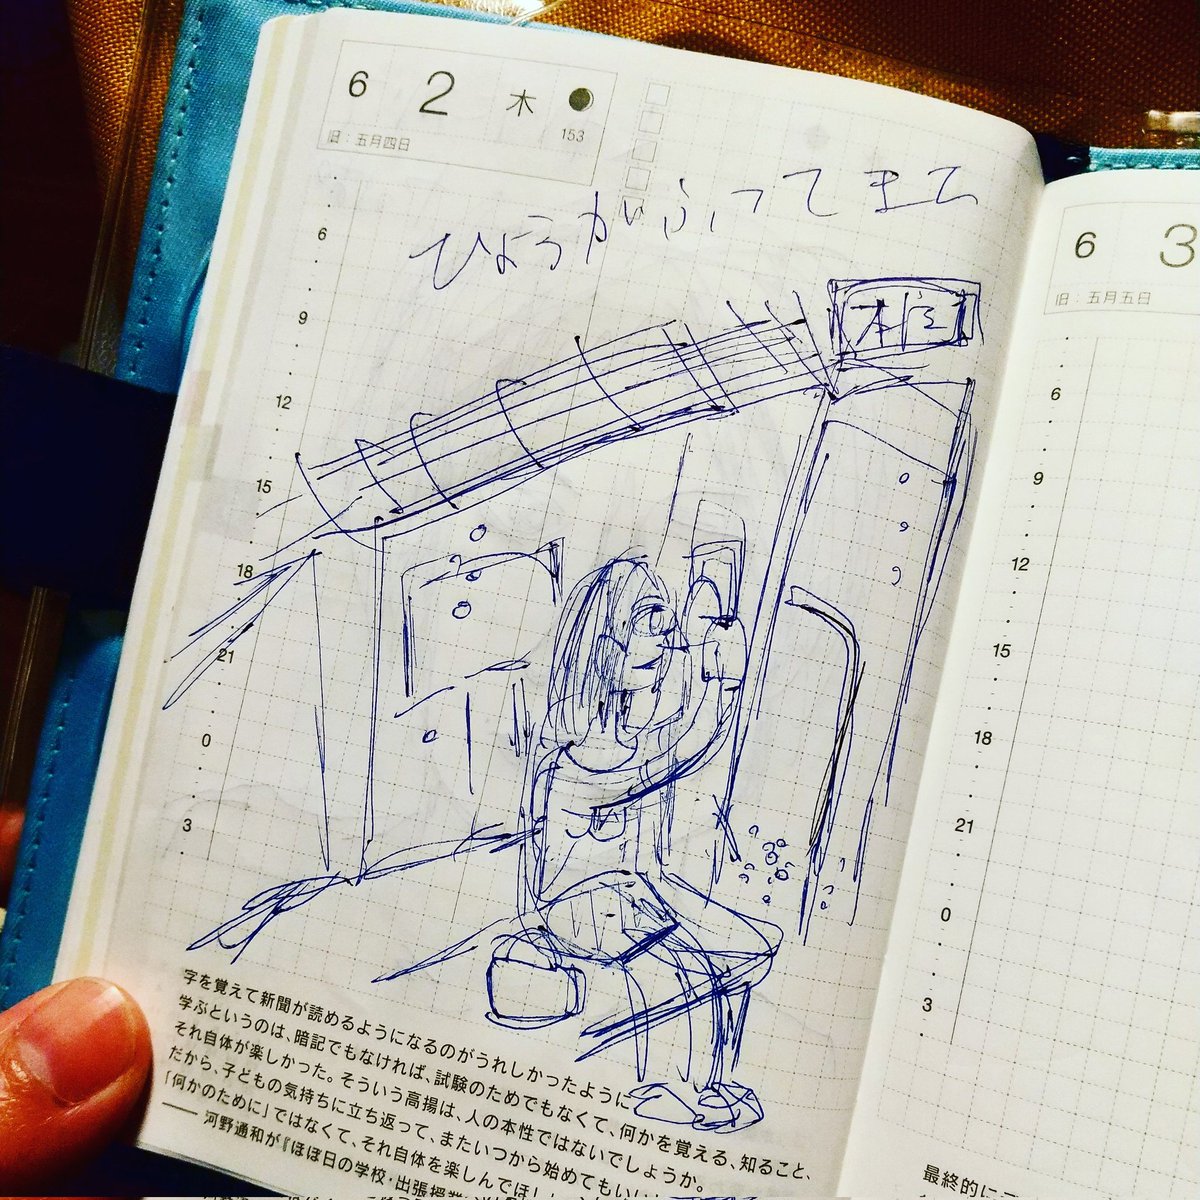 6 2 木
153
旧：五月四日
ひょうがふってきて
6
9
12
15
18
21
0
3
字を覚えて新聞が読めるようになるのがうれしかったように
学ぶというのは、暗記でもなければ、試験のためでもなくて、何かを覚える、知ること、
それ自体が楽しかった。そういう高揚は、人の本性ではないでしょうか。
だから、子どもの気持ちに立ち返って、またいつから始めてもいい
「何かのために」ではなくて、それ自体を楽しんでほし
── 河野通和が『ほぼ日の学校・出張授業
6 3
旧：五月五日
6
9
12
15
18
21
0
3
最終的に